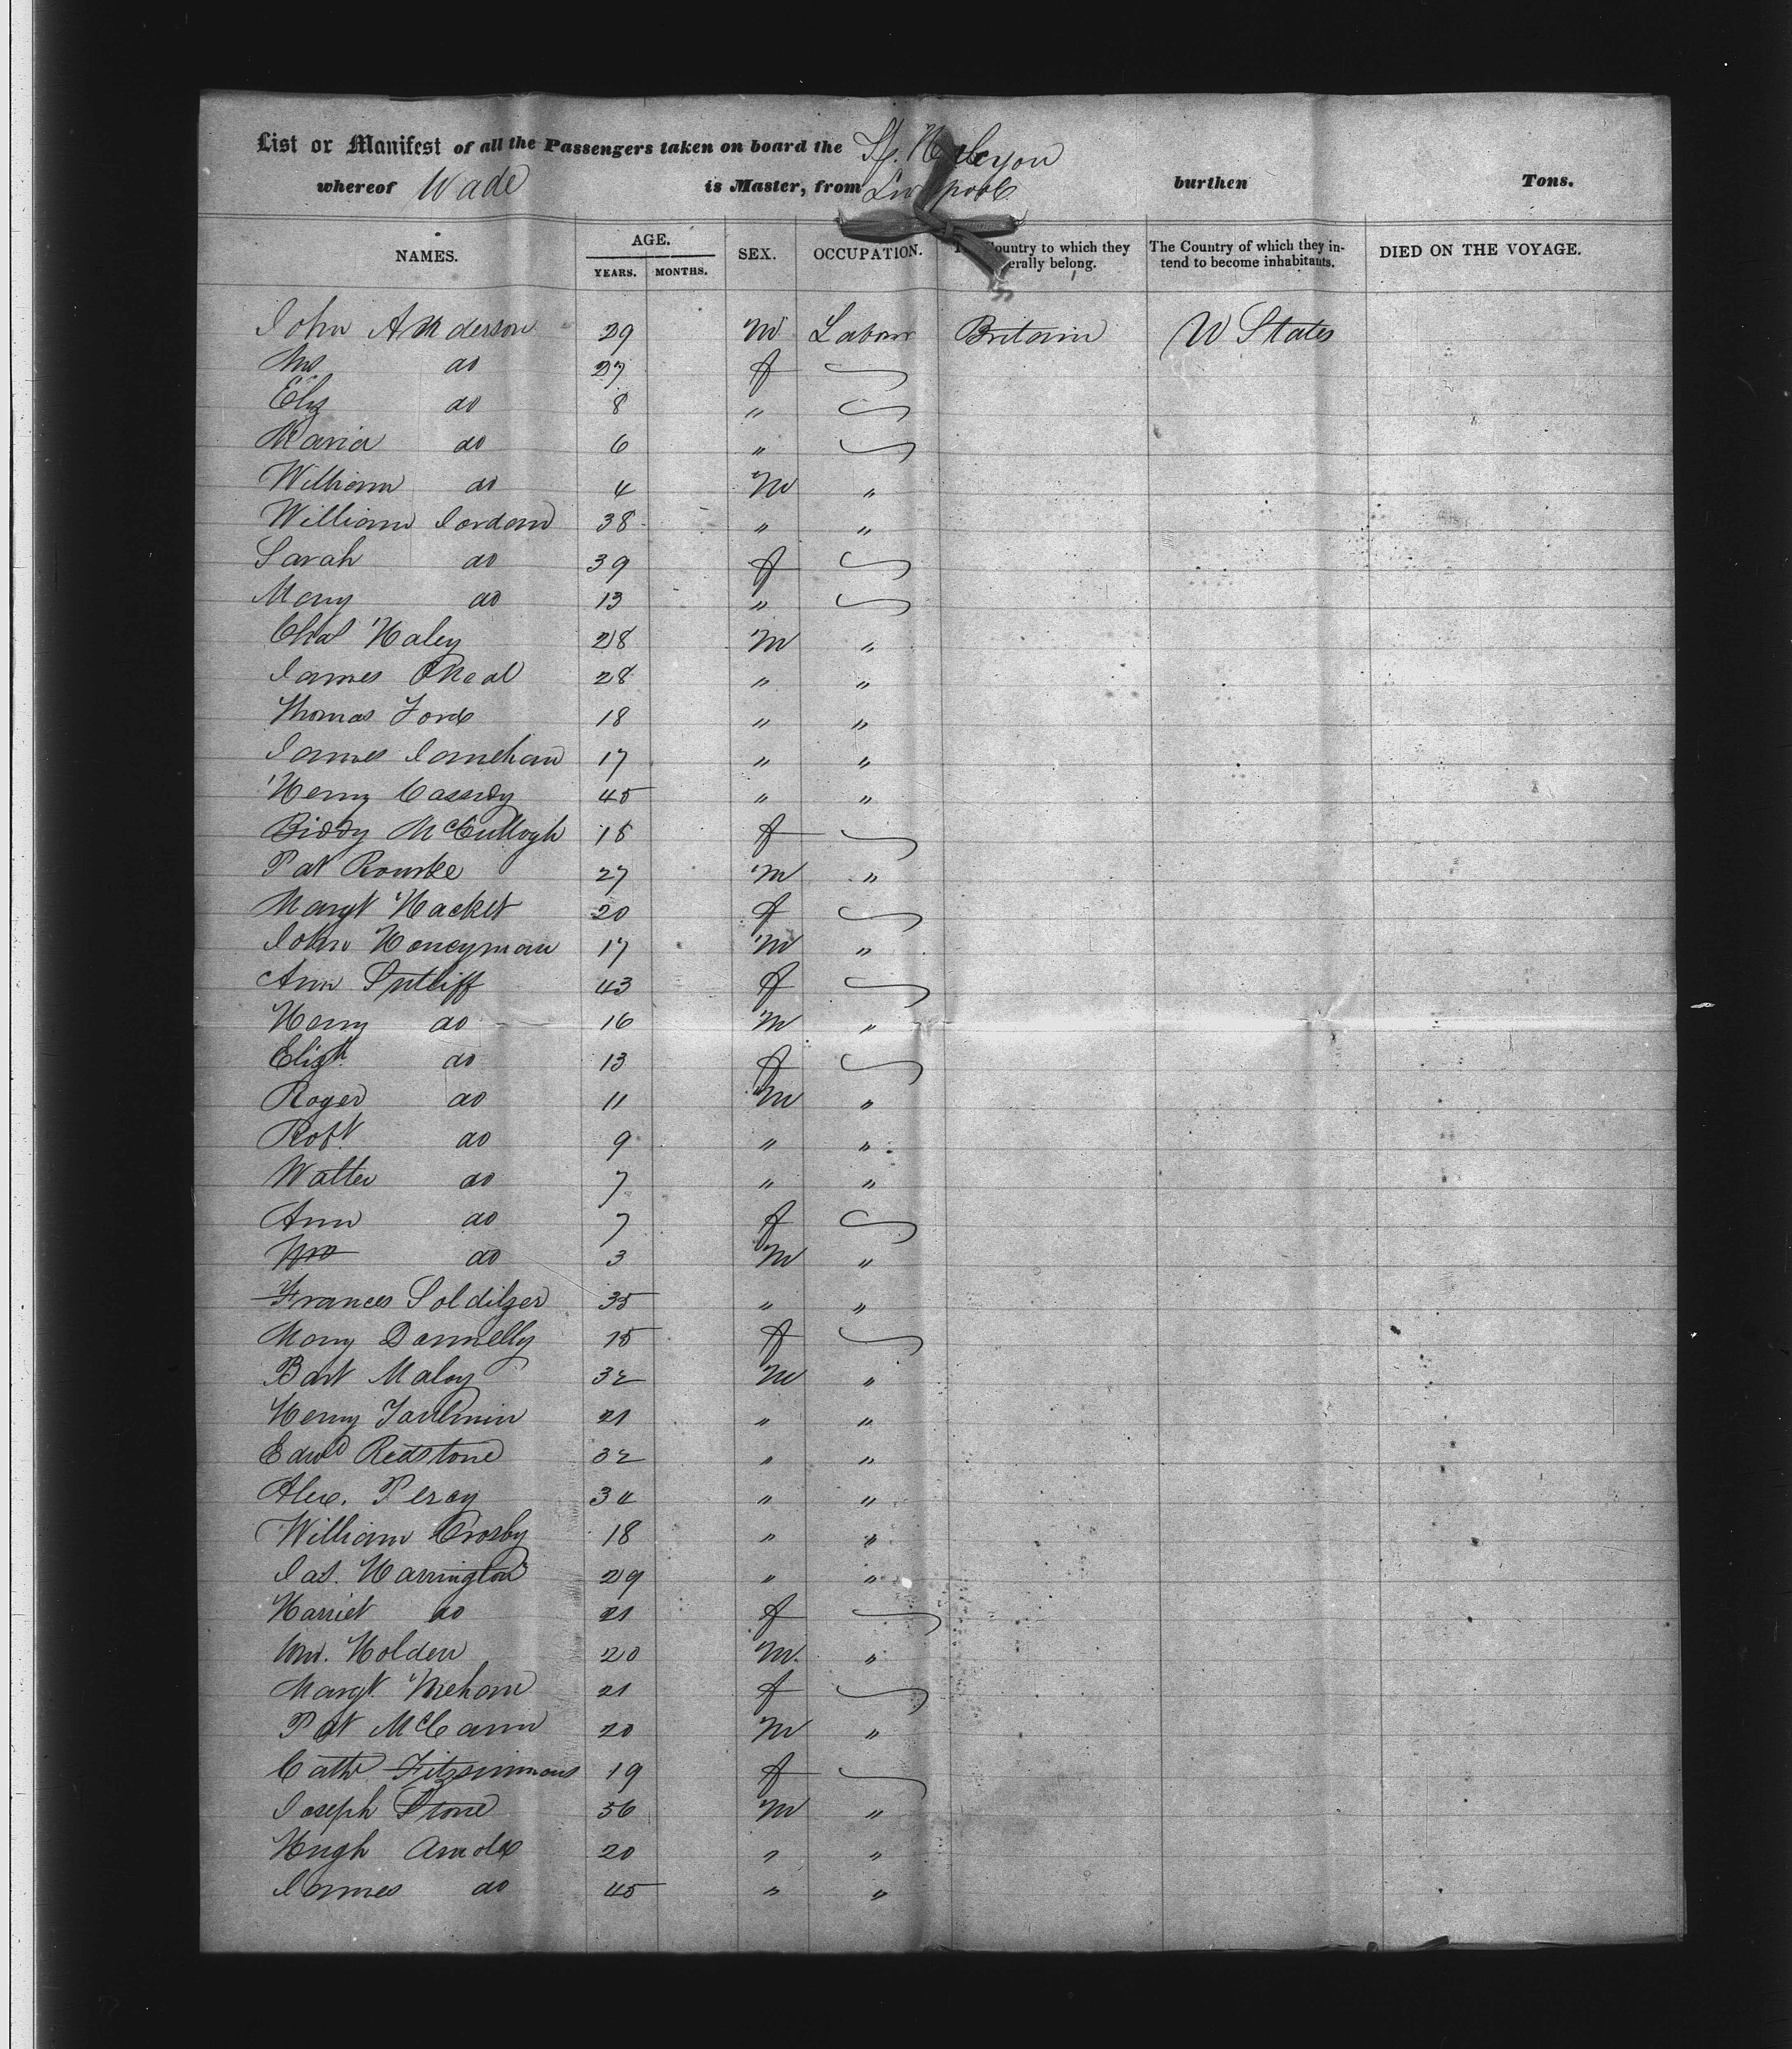 List or Manifest of all the Passengers taken on board the Sp. Halcyon
whereof Wade is Master, from Liverpool burthen Tons.
NAMES. AGE. YEARS. MONTHS. SEX. OCCUPATION. Country to which they erally belong. The Country of which they intend to become inhabitants. DIED ON THE VOYAGE.
John Anderson 29 M Labour Britain U States
Mrs do 27 f
Eliz do 8 "
Maria do 6 "
William do 4 M "
William Jordan 38 " "
Sarah do 39 f
Mary do 13 "
Chas Haley 28 M "
James ONeal 28 " "
Thomas Ford 18 " "
James 17 " "
Henry Cassidy 45 " "
Biddy McCullogh 18 f
Pat Rourke 27 M "
Margt Hacket 20 f
John Honeyman 17 M "
Ann Sutliff 43 f
Henry do 16 M "
Elizh do 13 f
Roger do 11 M "
Robt do 9 " "
Walter do 7 " "
Ann do 7 f
Wm do 3 M "
Frances 35 " "
Mary Donnelly 15 f
Bart Maloy 32 M "
Henry 21 " "
Edwd Redstone 32 " "
Alex. Percy 34 " "
William Crosby 18 " "
Jas. Harrington 29 " "
Harriet do 21 f
Wm. Holden 20 M. "
Margt. Mehan 21 f
Pat McCann 20 M "
Cath Fitzsimmons 19 f
Joseph Stone 56 M "
Hugh Arnold 20 " "
James do 45 " "